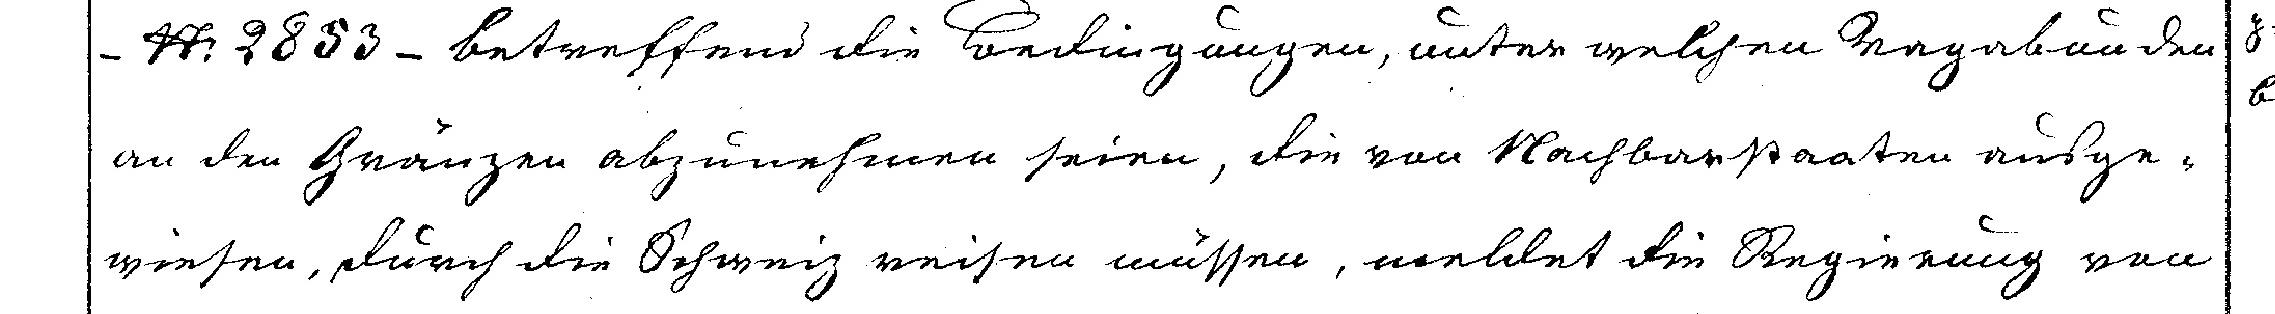 - N. 2853 - betreffend die Bedingungen, unter welchen Vagabunden
an den Gränzen abzunehmen seien, die von Nachbarstaaten ausge-
wiesen, durch die Schweiz reisen müssen, meldet die Regierung von